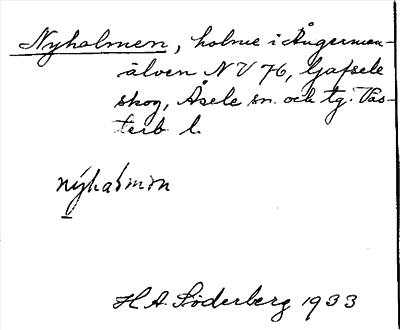 Nyholmen, holme i Ångerman-
älven NV 76, Gafsele
skog, Åsele sn. och tg. Väs-
terb l.
nýhalmɘn
H.A. Söderberg 1933